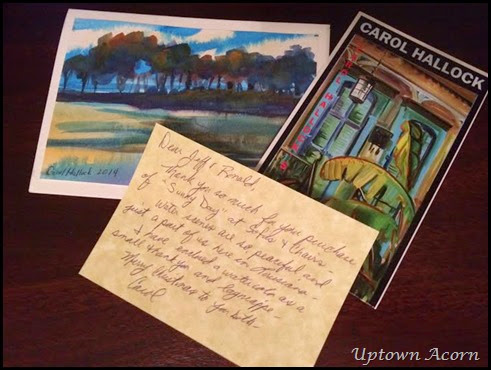 CAROL HALLOCK
Carol Hallock 2014
Dear Jeff & Ronald,
Thank you so much for you purchase
of "Sunny Day" at Sopho & Chairis-
Water scenes are so peaceful and
just a part of us here in Louisiana-
I have enclosed a watercolor as a
small thank you and
Merry Christmas to you both-
Carol
Uptown Acorn